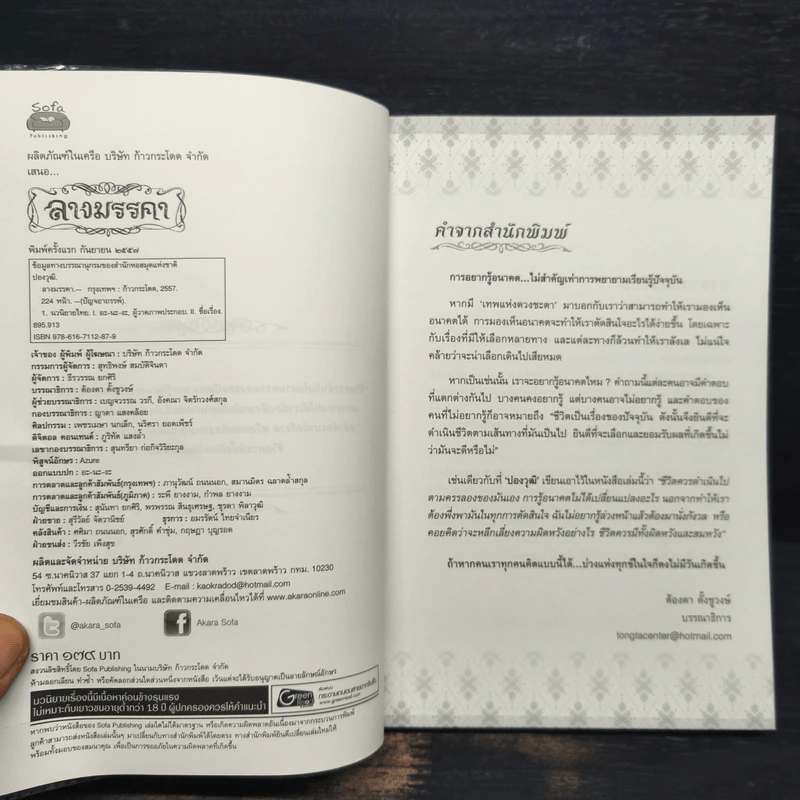 Sofa
Publishing
ผลิตภัณฑ์ในเครือ บริษัท ก้าวกระโดด จำกัด
เสนอ...
ลางมรรคา
พิมพ์ครั้งแรก กันยายน ๒๕๕๗
ข้อมูลทางบรรณานุกรมของสำนักหอสมุดแห่งชาติ
ปองวุฒิ.
ลางมรรคา.— กรุงเทพฯ : ก้าวกระโดด, 2557.
224 หน้า. —(ปัญจอาถรรพ์).
1. นวนิยายไทย. I. อะ-นะ-งะ, ผู้วาดภาพประกอบ. II. ชื่อเรื่อง.
895.913
ISBN 978-616-7112-87-9
เจ้าของ ผู้พิมพ์ ผู้โฆษณา : บริษัท ก้าวกระโดด จำกัด
กรรมการผู้จัดการ : สุทธิพงษ์ สมบัติจินดา
ผู้จัดการ : ธีรวรรณ ยกศิริ
บรรณาธิการ : ต้องตา ตั้งชูวงษ์
ผู้ช่วยบรรณาธิการ : เบญจวรรณ วรกี, อังคณา จิตรักวงศ์สกุล
กองบรรณาธิการ : ญาดา แสงคล้อย
ศิลปกรรม : เพชรเมษา นกเล็ก, นริศรา ยอดเพ็ชร์
ดิจิตอล คอนเทนต์ : ภูริทัต แสงล้ำ
เลขากองบรรณาธิการ : สุนทรียา ก่อกิจวิริยะกุล
พิสูจน์อักษร : Azure
ออกแบบปก : อะ-นะ-งะ
การตลาดและลูกค้าสัมพันธ์(กรุงเทพฯ) : ภานุวัฒน์ ถนนนอก, สมานมิตร ฉลาดล้ำสกุล
การตลาดและลูกค้าสัมพันธ์(ภูมิภาค) : ระพี ยางงาม, กำพล ยางงาม
บัญชีและการเงิน : สุนันทา ยกศิริ, พรพรรณ สินธุเศรษฐ, ชุรดา พิลาวุฒิ
ฝ่ายขาย : สุรีวัลย์ จัตวานิชย์ ธุรการ : อมรรัตน์ ไทยจำเนียร
คลังสินค้า : คศิมา ถนนนอก, สุรศักดิ์ คำชุ่ม, กฤษฎา บุญรอด
ฝ่ายขนส่ง : วีรชัย เพ็งสุข
ผลิตและจัดจำหน่าย บริษัท ก้าวกระโดด จำกัด
54 ซ.นาคนิวาส 37 แยก 1-4 ถ.นาคนิวาส แขวงลาดพร้าว เขตลาดพร้าว กทม. 10230
โทรศัพท์และโทรสาร 0-2539-4492 E-mail : kaokradod@hotmail.com
เยี่ยมชมสินค้า-ผลิตภัณฑ์ในเครือ และติดตามความเคลื่อนไหวได้ที่ www.akaraonline.com
@akara_sofa
Akara Sofa
ราคา ๑๗๙ บาท
สงวนลิขสิทธิ์โดย Sofa Publishing ในนามบริษัท ก้าวกระโดด จำกัด
ห้ามลอกเลียน ทำซ้ำ หรือคัดลอกส่วนใดส่วนหนึ่งจากหนังสือ เว้นแต่จะได้รับอนุญาตเป็นลายลักษณ์อักษร
นวนิยายเรื่องนี้มีเนื้อหาค่อนข้างรุนแรง
ไม่เหมาะกับเยาวชนอายุต่ำกว่า 18 ปี ผู้ปกครองควรให้คำแนะนำ
Green
หากพบว่าหนังสือของ Sofa Publishing เล่มใดไม่ได้มาตรฐาน หรือเกิดความผิดพลาดอันเนื่องมาจากกระบวนการพิมพ์
ลูกค้าสามารถส่งหนังสือเล่มนั้นๆ มาเปลี่ยนกับทางสำนักพิมพ์ได้โดยตรง ทางสำนักพิมพ์ยินดีเปลี่ยนเล่มใหม่ให้
พร้อมทั้งมอบของสมนาคุณ เพื่อเป็นการขออภัยในความผิดพลาดที่เกิดขึ้น
คำจากสำนักพิมพ์
การอยากรู้อนาคต...ไม่สำคัญเท่าการพยายามเรียนรู้ปัจจุบัน
หากมี ‘เทพแห่งดวงชะตา’ มาบอกกับเราว่าสามารถทำให้เรามองเห็น
อนาคตได้ การมองเห็นอนาคตจะทำให้เราตัดสินใจอะไรได้ง่ายขึ้น โดยเฉพาะ
กับเรื่องที่มีให้เลือกหลายทาง และแต่ละทางก็ล้วนทำให้เราลังเล ไม่แน่ใจ
คล้ายว่าจะน่าเลือกเดินไปเสียหมด
หากเป็นเช่นนั้น เราจะอยากรู้อนาคตไหม ? คำถามนี้แต่ละคนอาจมีคำตอบ
ที่แตกต่างกันไป บางคนคงอยากรู้ แต่บางคนอาจไม่อยากรู้ และคำตอบของ
คนที่ไม่อยากรู้ก็อาจหมายถึง “ชีวิตเป็นเรื่องของปัจจุบัน ดังนั้นจึงยินดีที่จะ
ดำเนินชีวิตตามเส้นทางที่มันเป็นไป ยินดีที่จะเลือกและยอมรับผลที่เกิดขึ้นไม่
ว่ามันจะดีหรือไม่”
เช่นเดียวกับที่ ‘ปองวุฒิ’ เขียนเอาไว้ในหนังสือเล่มนี้ว่า “ชีวิตควรดำเนินไป
ตามครรลองของมันเอง การรู้อนาคตไม่ได้เปลี่ยนแปลงอะไร นอกจากทำให้เรา
ต้องพึ่งพามันในทุกการตัดสินใจ ฉันไม่อยากรู้ล่วงหน้าแล้วต้องมานั่งกังวล หรือ
คอยคิดว่าจะหลีกเลี่ยงความผิดหวังอย่างไร ชีวิตควรมีทั้งผิดหวังและสมหวัง”
ถ้าหากคนเราทุกคนคิดแบบนี้ได้...บ่วงแห่งทุกข์ในใจก็คงไม่มีวันเกิดขึ้น
ต้องตา ตั้งชูวงษ์
บรรณาธิการ
tongtacenter@hotmail.com